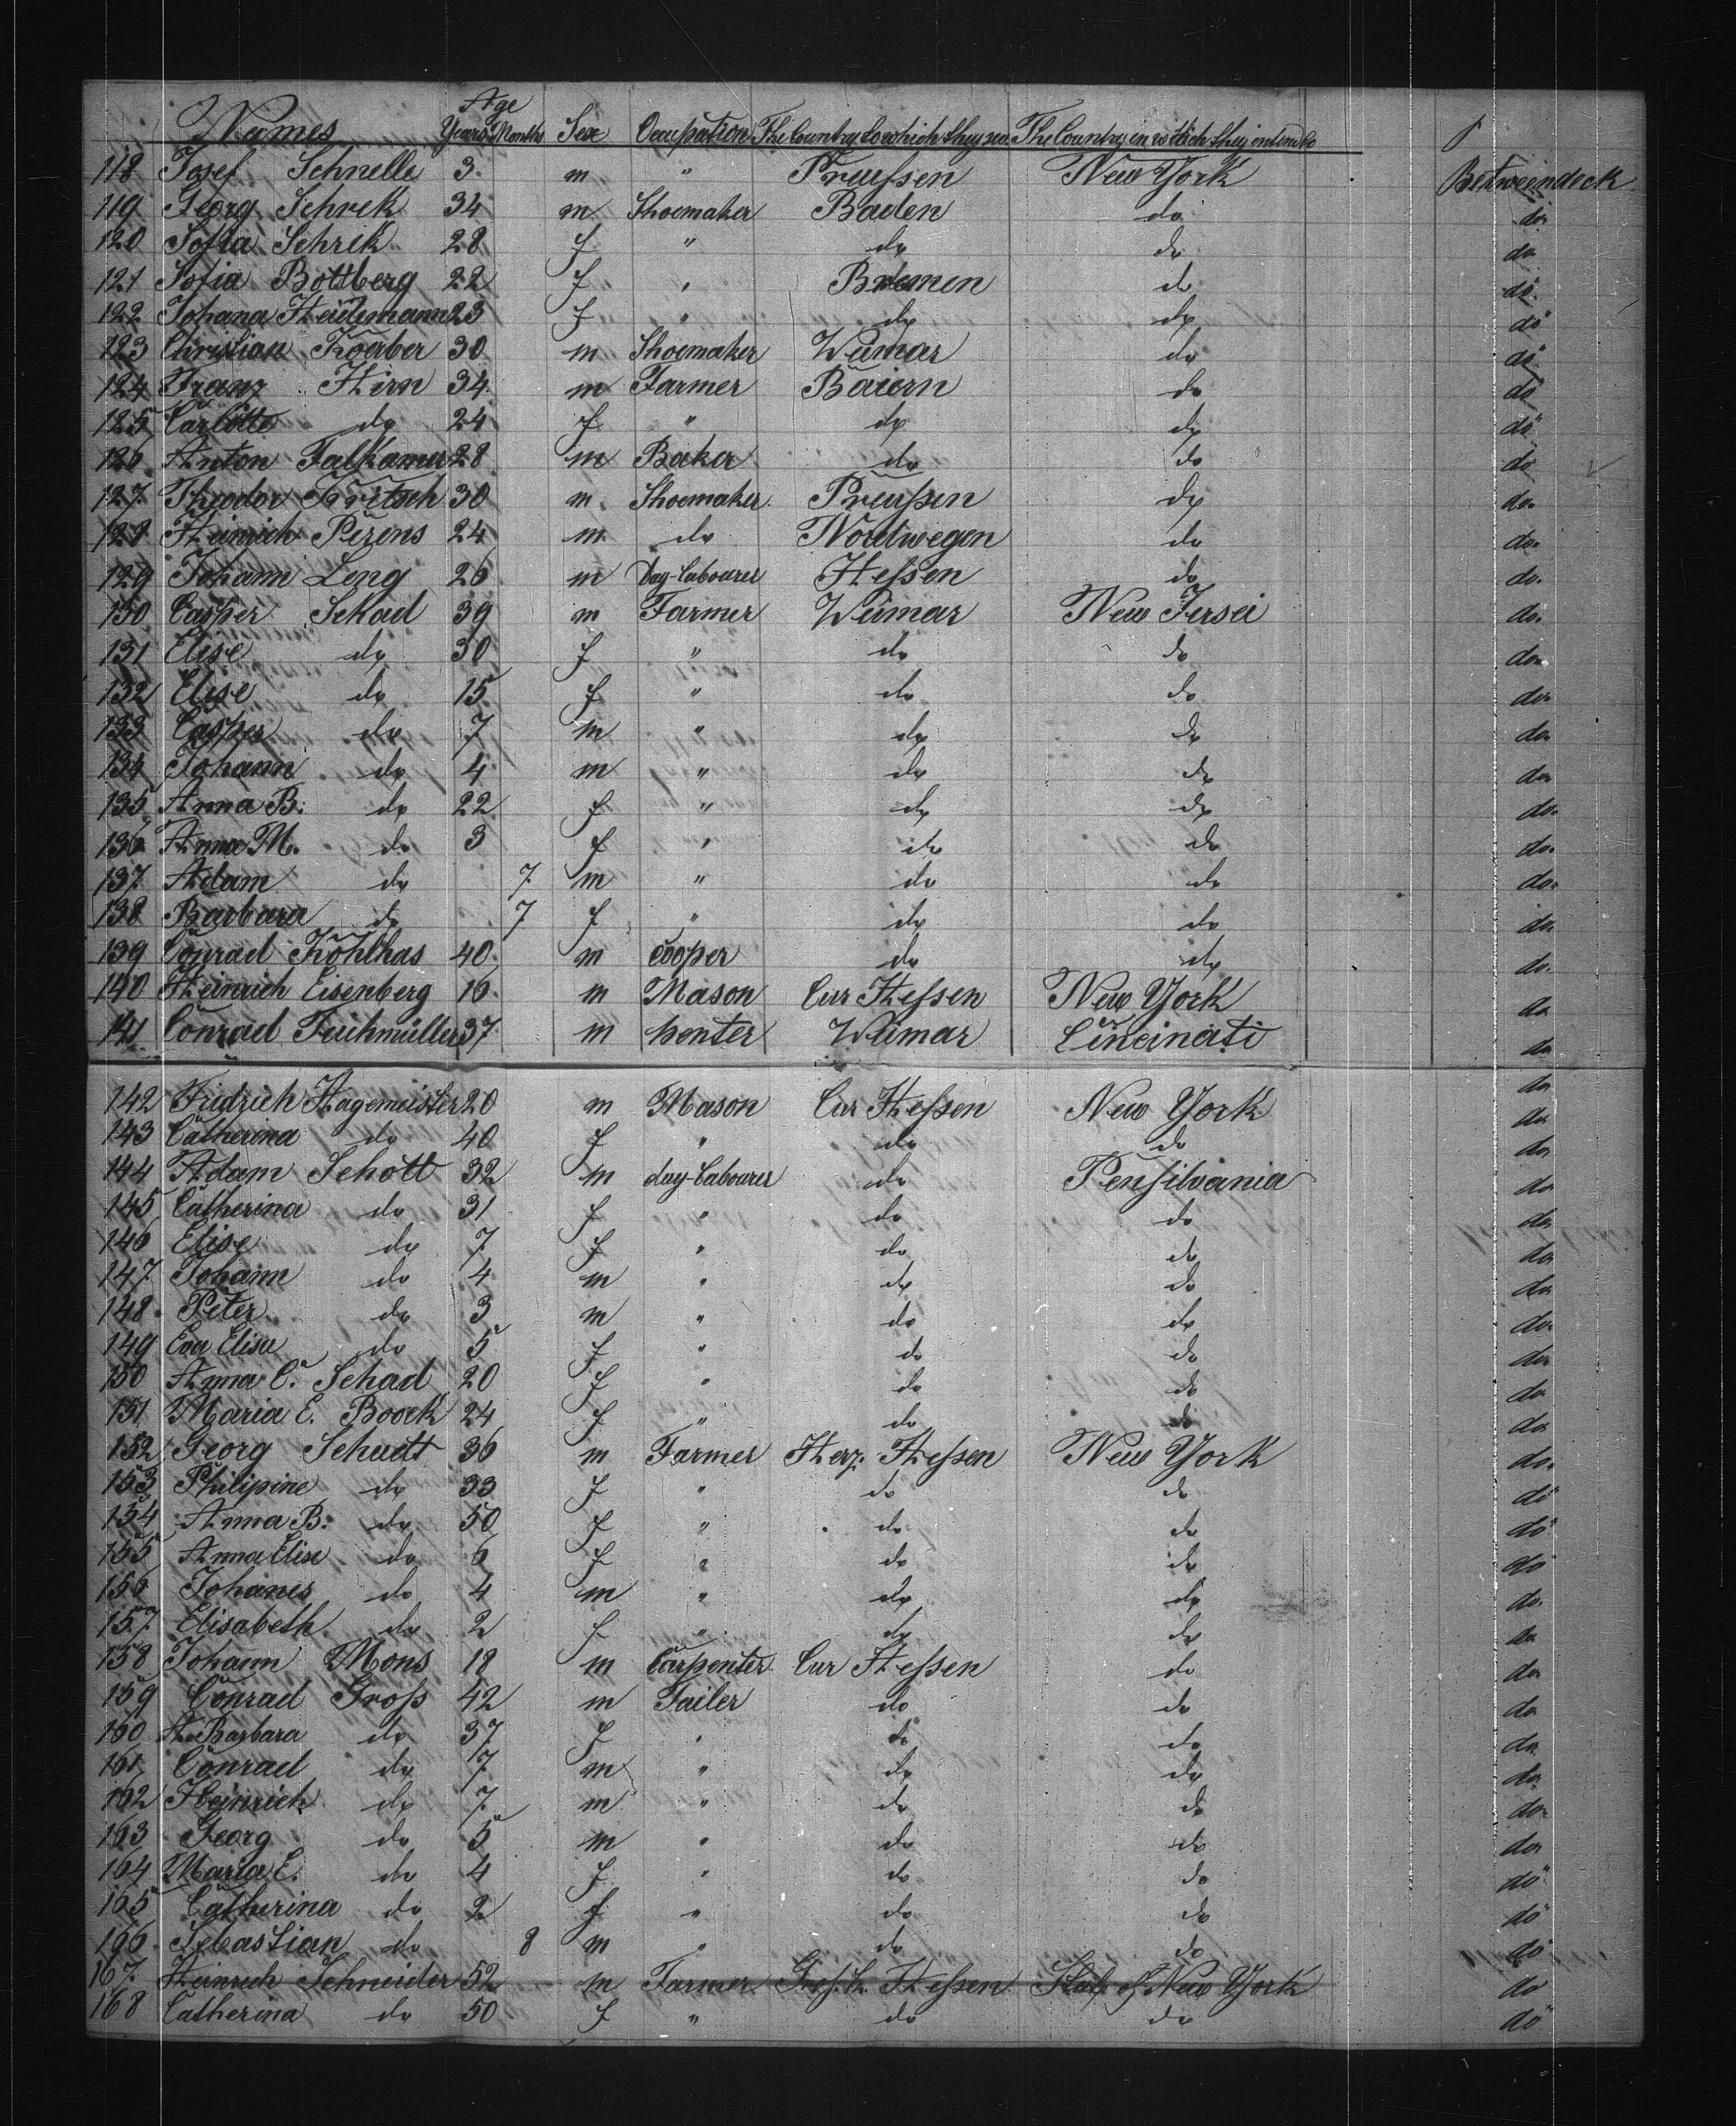 Age
Names Years Months Sex Occupation The Country to which they The Country in which they intend to
118 Josef Schnelle 3 m " Preußen New York Betweendeck
119 Georg Schrek 34 m Shoemaker Baden do do
120 Sofia Schrik 28 f " do do do
121 Sofia Bottberg 22 f " Bremen do do
122 Johana Heidemann 23 f " do do do
123 Christian Koerber 30 m Shoemaker Weimar do do
124 Franz Hirn 34 m Farmer Baiern do do
125 Carlotte do 24 f " do do do
126 Anton Falkamer 28 m Baker do do do
127 Theodor Fritsch 30 m Shoemaker Preußen do do
128 Heinrich Perens 24 m do Nordwegen do do
129 Johann Leng 26 m Day-Labourer Heßen do do
130 Casper Schad 39 m Farmer Weimar New Jersei do
131 Elise do 30 f " do do do
132 Elise do 15 f " do do do
133 Casper do 7 m " do do do
134 Johann do 4 m " do do do
135 Anna B. do 22 f " do do do
136 Anna M. do 3 f " do do do
137 Adam do 7 m " do do do
138 Barbara do 7 f " do do do
139 Conrad Kohlhas 40 m Cooper do do do
140 Heinrich Eisenberg 16 m Mason Cur Heßen New York do
141 Conrad Feichmüller 37 m penter Weimar Cincinati do
142 Fridrich Hagemeister 20 m Mason Cur Heßen New York do
143 Catherina do 40 f " do do do
144 Adam Schott 32 m day-Labourer do Pensilvania do
145 Catherina do 31 f " do do do
146 Elise do 7 f " do do do
147 Johann do 4 m " do do do
148 Peter do 3 m " do do do
149 Eva Elise do 5 f " do do do
150 Anna C. Schad 20 f " do do do
151 Maria E. Boock 24 f " do do do
152 Georg Schudt 36 m Farmer Herz. Heßen New York do
153 Philipine do 33 f " do do do
154 Anna B. do 50 f " do do do
155 Anna Elise do 6 f " do do do
156 Johanes do 4 m " do do do
157 Elisabeth do 2 f " do do do
158 Johann Mons 18 m Carpenter Cur Heßen do do
159 Conrad Groß 42 m Tailer do do do
160 A. Barbara do 37 f " do do do
161 Conrad do 7 m " do do do
162 Heinrich do 7 m " do do do
163 Georg do 5 m " do do do
164 Maria E. do 4 f " do do do
165 Catherina do 2 f " do do do
166 Sebastian do 8 m " do do do
167 Heinrich Schneider 52 m Farmer Heßen State of New York do
168 Catherina do 50 f " do do do